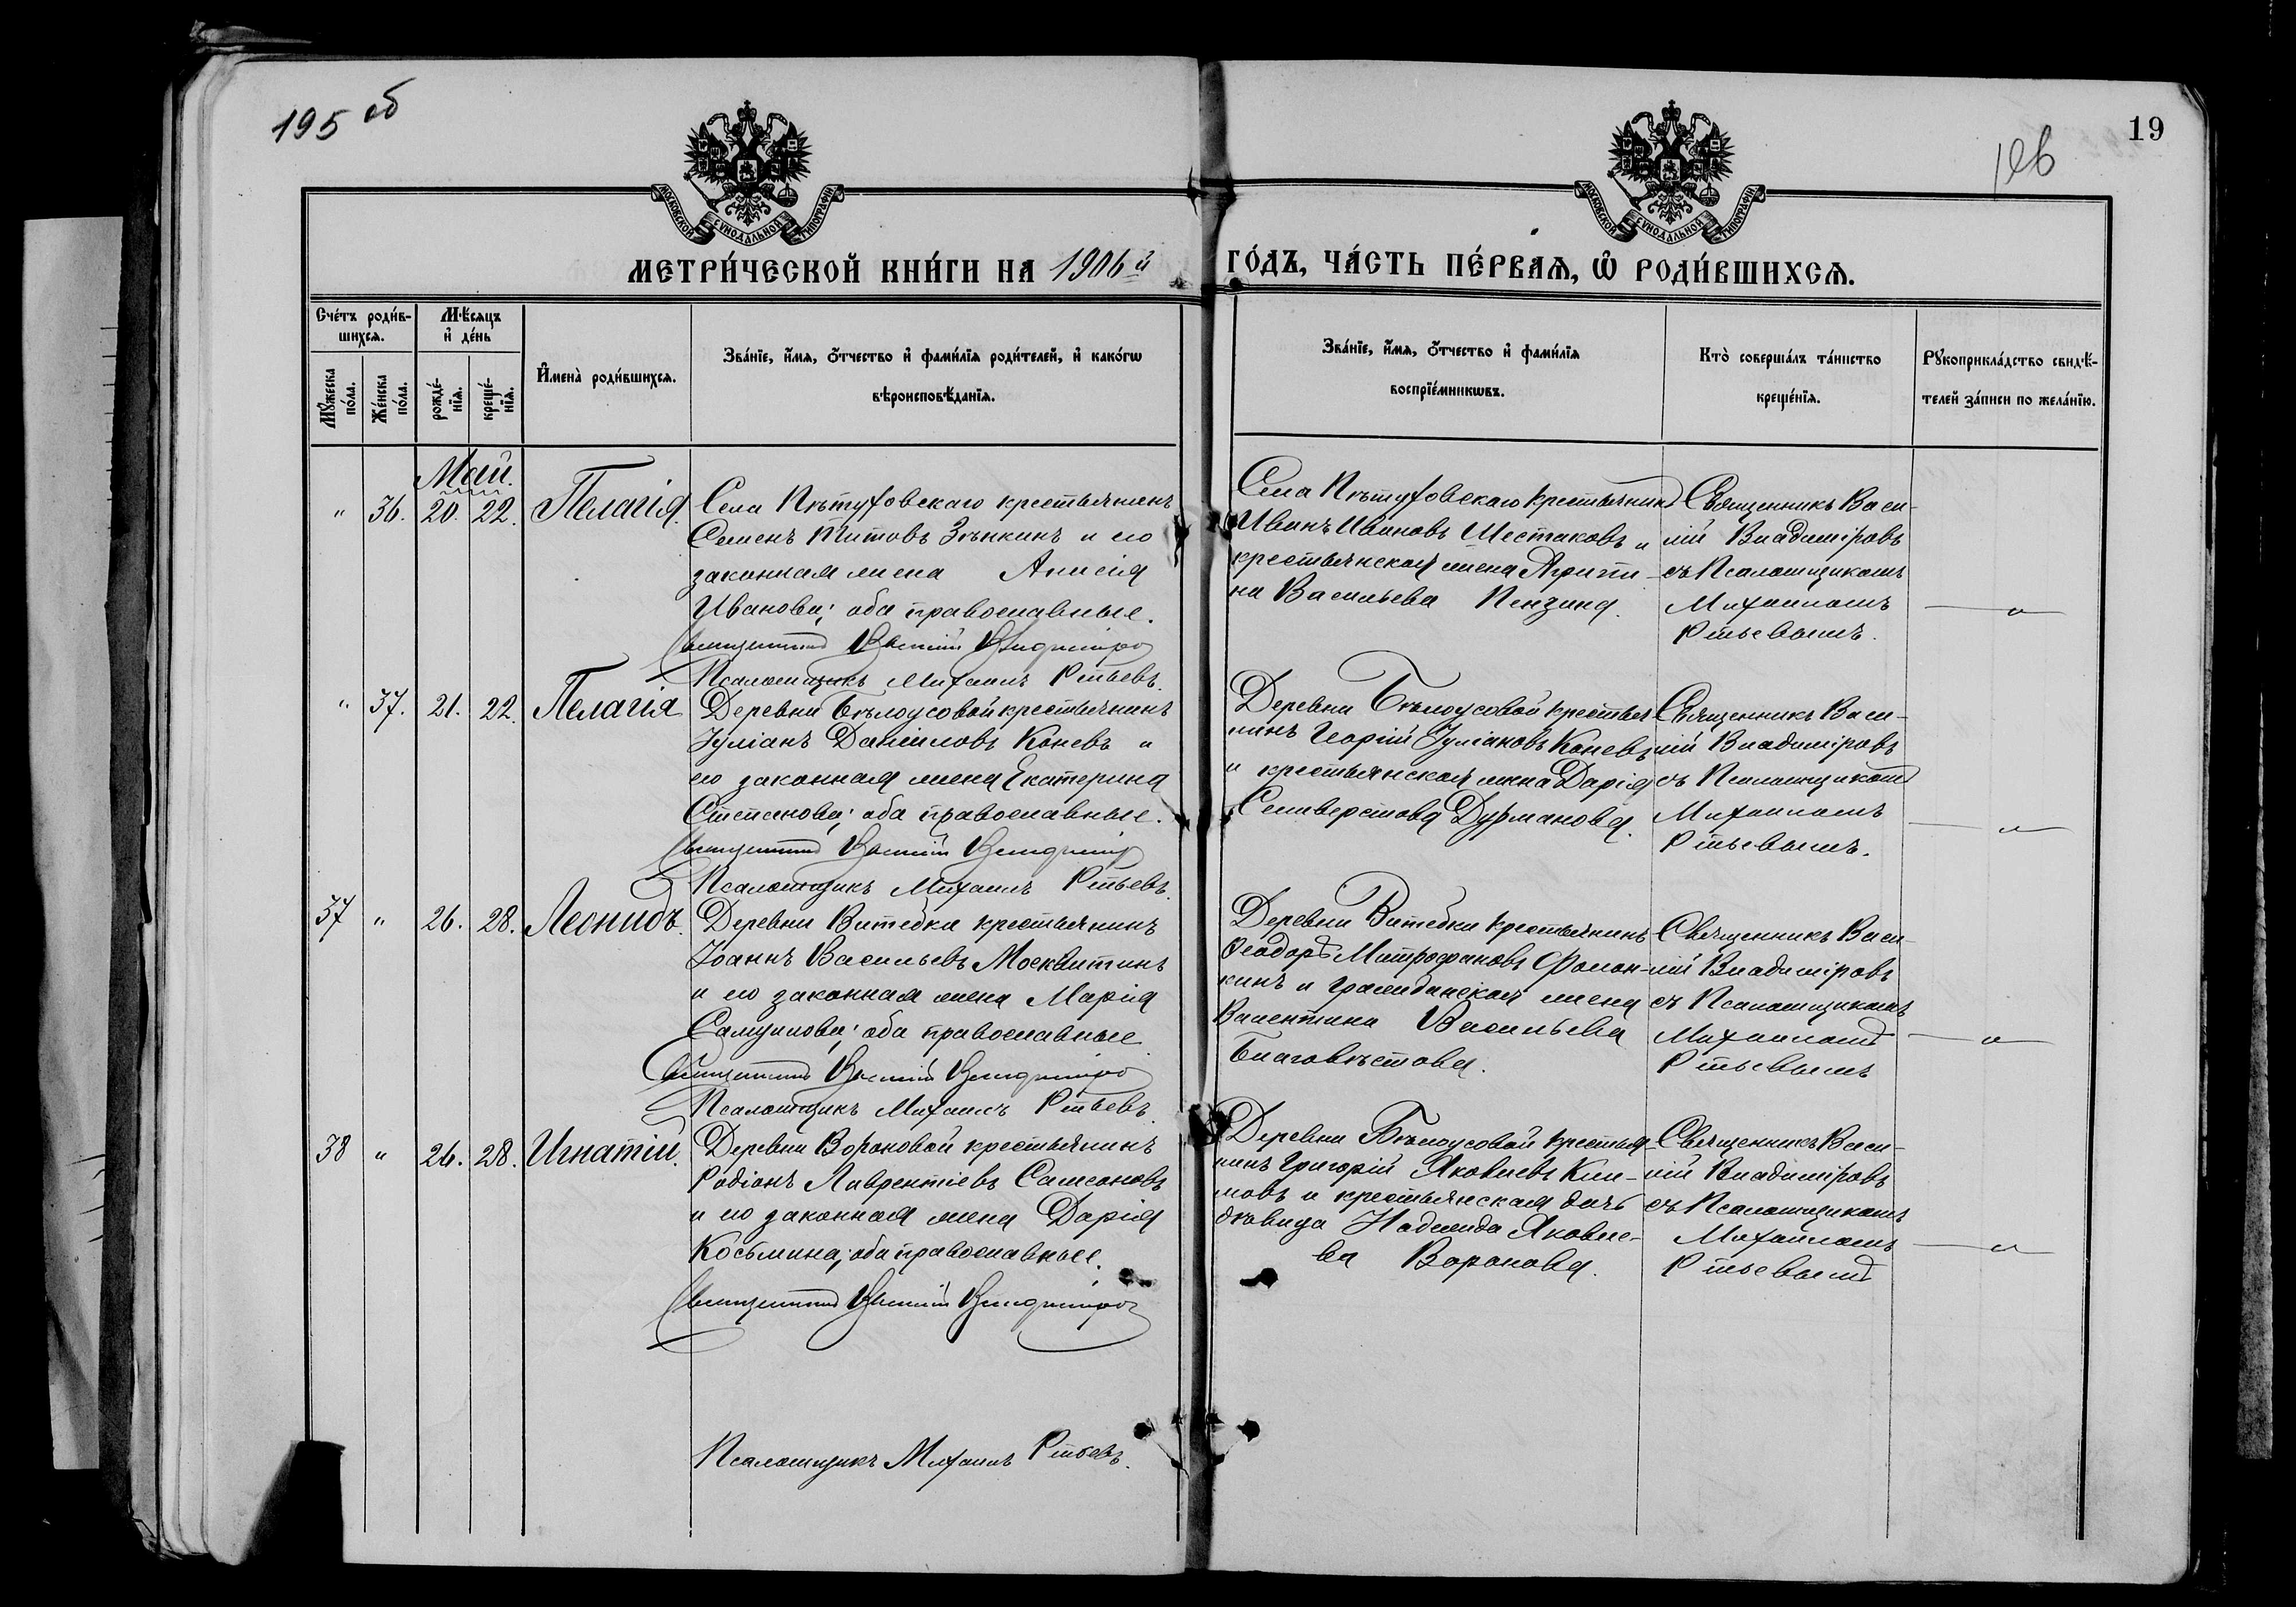 195 об
19
196
МОСКОВСКОЙ СѴНОДАЛЬНОЙ ТИПОГРАФІИ
МОСКОВСКОЙ СѴНОДАЛЬНОЙ ТИПОГРАФІИ
МЕТРИ́ЧЕСКОЙ КНИ́ГИ НА 1906й ГО́ДЪ, ЧА́СТЬ ПЕ́РВАѦ, Ѡ҆ РОДИ́ВШИХСѦ.
Сче́тъ роди́в-
шихсѧ.
Мꙋ́жеска
по́ла.
Же́нска
по́ла.
Мѣ́сѧцъ
и҆ де́нь
рожде́-
нїѧ.
креще́-
нїѧ.
И҆мена̀ роди́вшихсѧ.
Зва́нїе, и҆́мѧ, ѻ҆́тчество и҆ фами́лїѧ роди́телей, и҆ како́гѡ
вѣроисповѣ́данїѧ.
Зва́нїе, и҆́мѧ, ѻ҆́тчество и҆ фами́лїѧ
воспрїе́мникѡвъ.
Кто̀ соверша́лъ та́инство
креще́нїѧ.
Рꙋкоприкла́дство свидѣ́-
телей за́писи по жела́нїю.
Май.
" 36. 20. 22. Пелагія.
Села Пѣтуховскаго крестьянинъ
Семенъ Титовъ Зѣнкинъ и его
законная жена Анисія
Иванова; оба православные.
Священникъ Василій Владиміров
Псаломщикъ Михаилъ Ртьевъ.
Села Пѣтуховскаго крестьянинъ
Иванъ Ивановъ Шестаковъ и
крестьянская жена Агрипи-
на Васильева Пензина.
Священникъ Васи-
лій Владиміровъ
съ Псаломщикомъ
Михаиломъ
Ртьевымъ.
" 37. 21. 22. Пелагія
Деревни Бѣлоусовой крестьянинъ
Іуліанъ Даніиловъ Коневъ и
его законная жена Екатерина
Стетанова; оба православные.
Священникъ Василій Владимір
Псаломщикъ Михаилъ Ртьевъ.
Деревни Бѣлоусовой крестья
нинъ Георгій Іуліановъ Коневъ
и крестьянская жена Дарія
Селиверстова Дурманова.
Священникъ Васи-
лій Владиміровъ
съ Псаломщикомъ
Михаиломъ
Ртьевымъ.
37 " 26. 28. Леонидъ.
Деревни Витебка крестьянинъ
Іоаннъ Васильевъ Москвитинъ
и его законная жена Марія
Самуилова; оба православные.
Священникъ Василій Владиміров
Псаломщикъ Михаилъ Ртьевъ.
Деревни Витебки крестьянинъ
Ѳеодоръ Митрофановъ Фомон-
кинъ и гражданская жена
Валентина Васильева
Благовѣстова.
Священникъ Васи-
лій Владиміровъ
съ Псаломщикомъ
Михаиломъ
Ртьевымъ
38 " 26. 28. Игнатій.
Деревни Вороновой крестьянинъ
Родіонъ Лаврентіевъ Самсоновъ
и его законная жена Дарія
Косьмина; оба православные.
Священникъ Василій Владиміров
Псаломщикъ Михаилъ Ртьевъ.
Деревни Бѣлоусовой крестья-
нинъ Григорій Яковлевъ Кли-
мовъ и крестьянская дочь
дѣвица Надежда Яковле-
ва Воронова.
Священникъ Васи-
лій Владиміровъ
съ Псаломщикомъ
Михаиломъ
Ртьевымъ